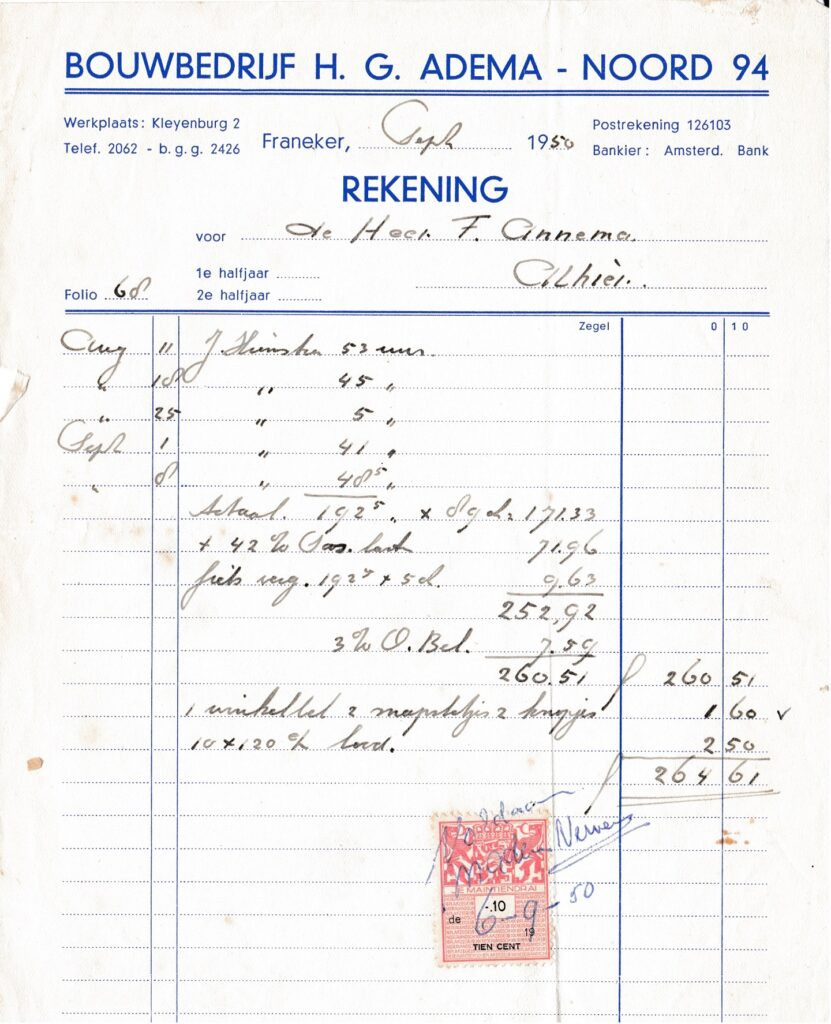 BOUWBEDRIJF H. G. ADEMA - NOORD 94
Werkplaats: Kleyenburg 2
Telef. 2062 - b.g.g. 2426
Franeker, Sept 1950
Postrekening 126103
Bankier: Amsterd. Bank
REKENING
voor de Heer F. Annema.
Alhier.
1e halfjaar
2e halfjaar
Folio 68
Zegel 0 10
Aug 11 J 53 uur.
„ 18 „ 45 „
„ 25 „ 5 „
Sept 1 „ 41 „
„ 8 „ 48⁵ „
192⁵ „ x 89 ct = 171.33
+ 42% Soc. last 71.96
fiets verg. 192⁵ x 5 ct. 9.63
252,92
3% O. Bel. 7.59
260.51 f 260 51
1 winkellat 2 2 knopjes 1 60 v
10 x 120 lood. 2 50
f 264 61
Voldaan
JE MAINTIENDRAI
-.10
de 6-9-50
19
TIEN CENT